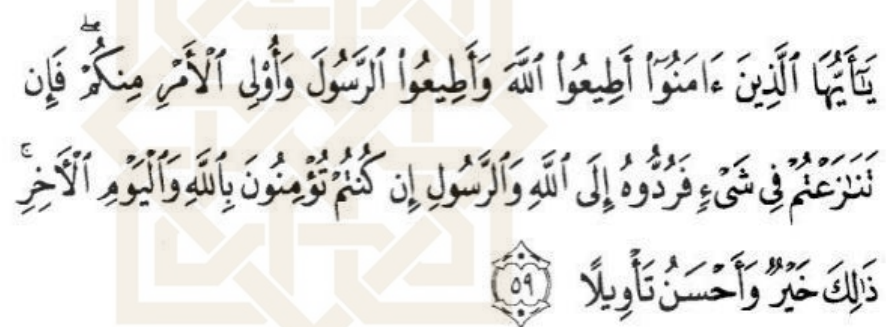 يَـٰٓأَيُّهَا ٱلَّذِينَ ءَامَنُوٓا۟ أَطِيعُوا۟ ٱللَّهَ وَأَطِيعُوا۟ ٱلرَّسُولَ وَأُو۟لِى ٱلْأَمْرِ مِنكُمْ ۖ فَإِن
تَنَـٰزَعْتُمْ فِى شَىْءٍ فَرُدُّوهُ إِلَى ٱللَّهِ وَٱلرَّسُولِ إِن كُنتُمْ تُؤْمِنُونَ بِٱللَّهِ وَٱلْيَوْمِ ٱلْـَٔاخِرِ ۚ
ذَٰلِكَ خَيْرٌ وَأَحْسَنُ تَأْوِيلًا ٥٩